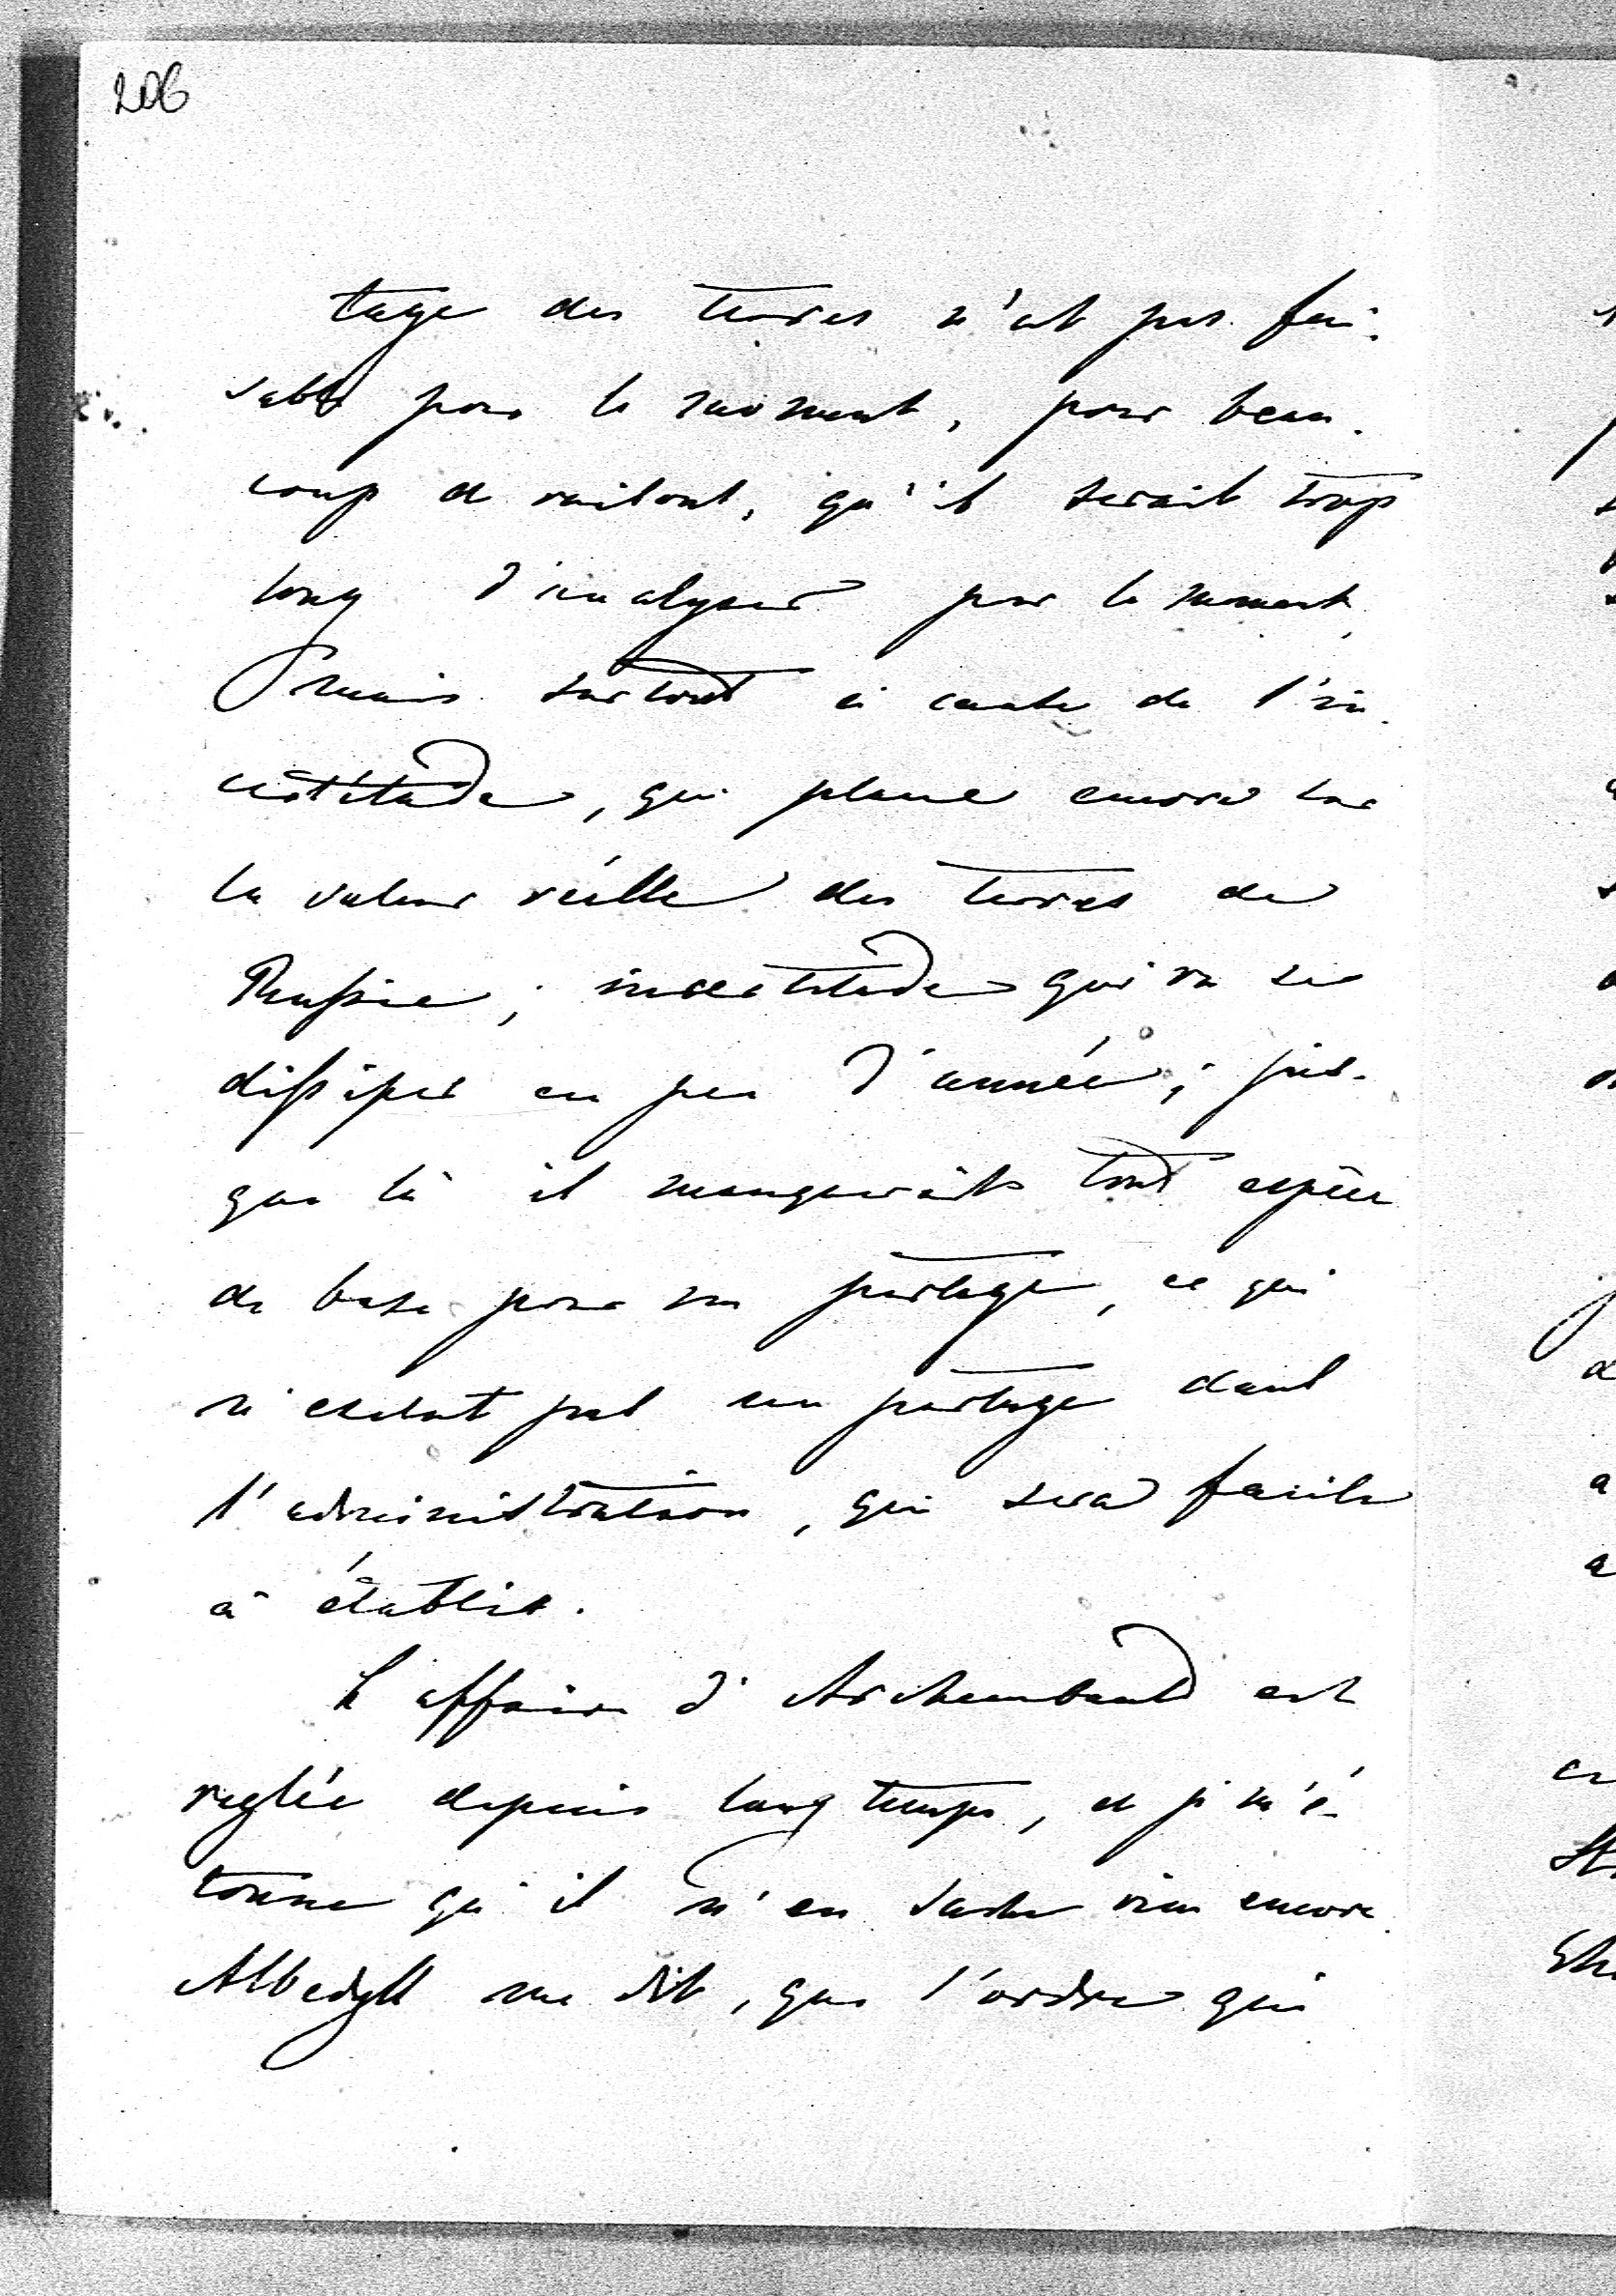 206
tage des terres n'est pas fai-
sable pour le moment, pour beau-
coup de raisons, qu'il serait trop
long d'analyser pour le moment,
mais surtout à cause de l'in-
certitude, qui plane encore sur
la valeur réelle des terres de
Russie; incertitude qui va se
dissiper en peu d'année; jus-
que là il manquerait tout espèce
de base pour un partage, ce qui
n'exclut pas un partage dans
l'administration, qui sera facile
à établir.
L'affaire d'Archambauld est
reglée depuis longtemps, et je m'é-
tonne qu'il n'en sache rien encore.
Albedyll me dit, que l'ordre qui